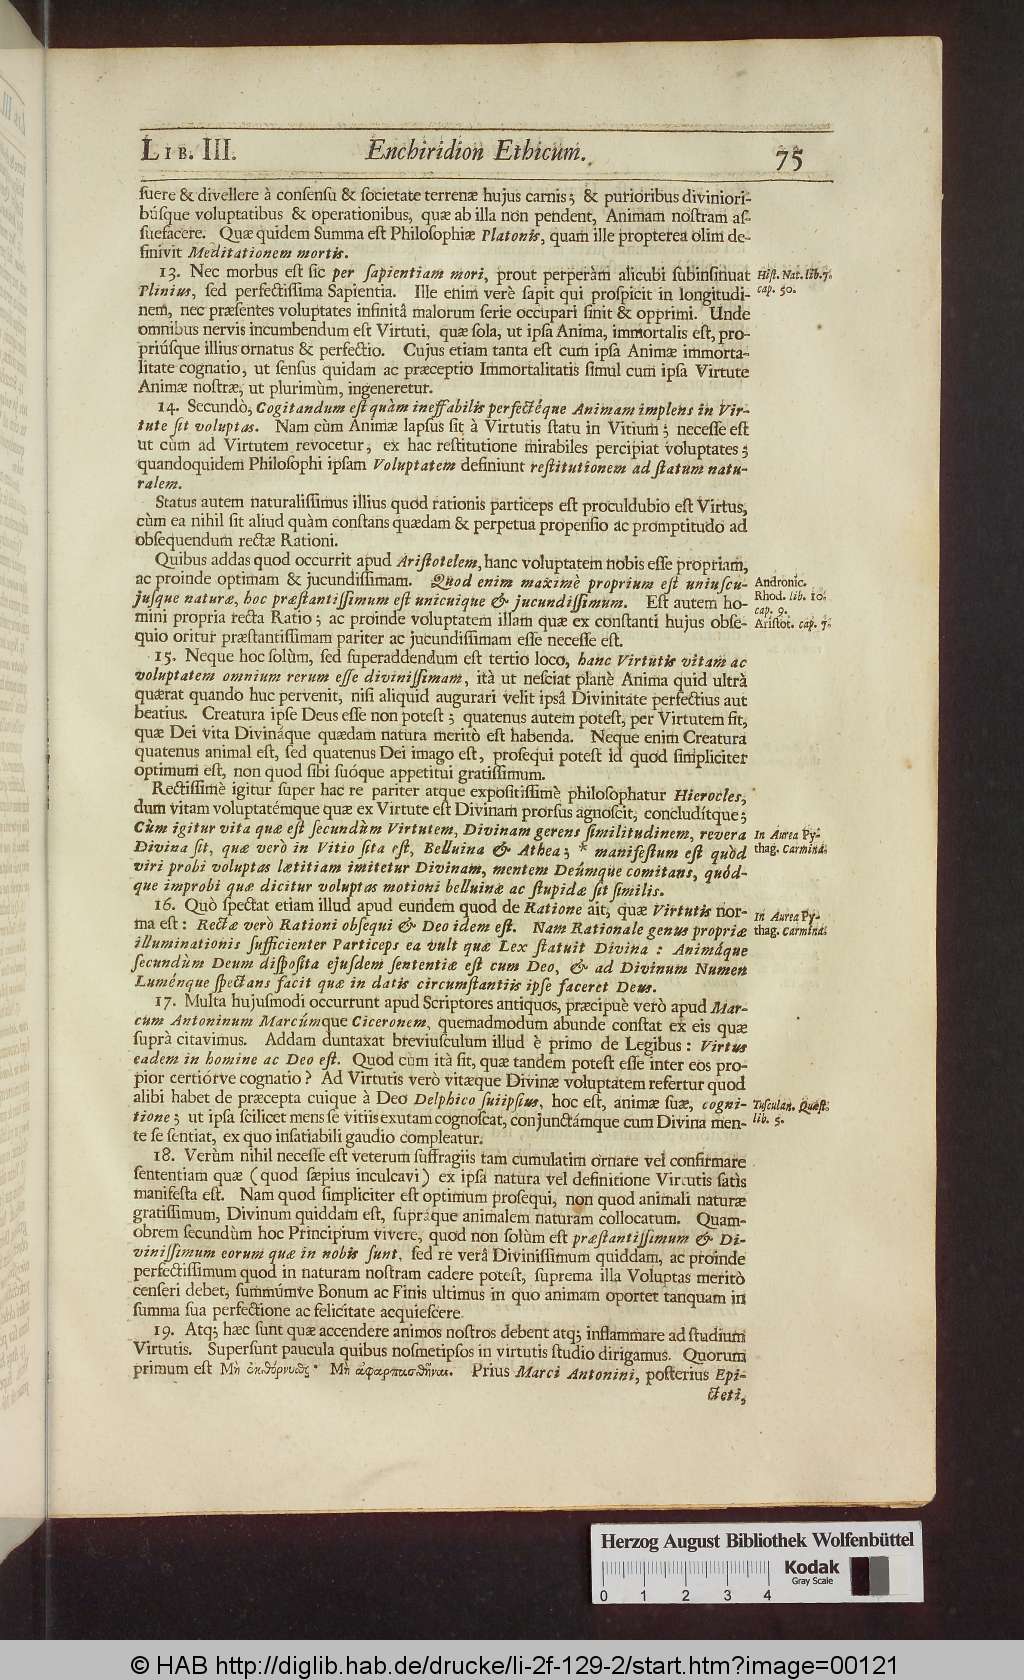 LIB. III. Enchiridion Ethicum. 75
ſuere & divellere à conſenſu & ſocietate terrenæ hujus carnis; & purioribus diviniori-
búſque voluptatibus & operationibus, quæ ab illa non pendent, Animam noſtram aſ-
ſuefacere. Quæ quidem Summa eſt Philoſophiæ Platonis, quam ille propterea olim de-
finivit Meditationem mortis.
13. Nec morbus eſt ſic per ſapientiam mori, prout perperàm alicubi ſubinſinuat
Hiſt. Nat. lib. 7.
Plinius, ſed perfectiſſima Sapientia. Ille enim verè ſapit qui proſpicit in longitudi-
cap. 50.
nem, nec præſentes voluptates infinitâ malorum ſerie occupari ſinit & opprimi. Unde
omnibus nervis incumbendum eſt Virtuti, quæ ſola, ut ipſa Anima, immortalis eſt, pro-
priúſque illius ornatus & perfectio. Cujus etiam tanta eſt cum ipſa Animæ immorta-
litate cognatio, ut ſenſus quidam ac præceptio Immortalitatis ſimul cum ipſa Virtute
Animæ noſtræ, ut plurimùm, ingeneretur.
14. Secundò, Cogitandum eſt quàm ineffabilis perfectéque Animam implens in Vir-
tute ſit voluptas. Nam cùm Animæ lapſus ſit à Virtutis ſtatu in Vitium; neceſſe eſt
ut cùm ad Virtutem revocetur, ex hac reſtitutione mirabiles percipiat voluptates;
quandoquidem Philoſophi ipſam Voluptatem definiunt reſtitutionem ad ſtatum natu-
ralem.
Status autem naturaliſſimus illius quod rationis particeps eſt proculdubio eſt Virtus,
cùm ea nihil ſit aliud quàm conſtans quædam & perpetua propenſio ac promptitudo ad
obſequendum rectæ Rationi.
Quibus addas quod occurrit apud Ariſtotelem, hanc voluptatem nobis eſſe propriam,
ac proinde optimam & jucundiſſimam. Quod enim maximè proprium eſt uniuſcu-
Andronic.
juſque naturæ, hoc præſtantiſſimum eſt unicuique & jucundiſſimum. Eſt autem ho-
Rhod. lib. 10.
cap. 9.
mini propria recta Ratio; ac proinde voluptatem illam quæ ex conſtanti hujus obſe-
Ariſtot. cap. 7.
quio oritur præſtantiſſimam pariter ac jucundiſſimam eſſe neceſſe eſt.
15. Neque hoc ſolùm, ſed ſuperaddendum eſt tertio loco, hanc Virtutis vitam ac
voluptatem omnium rerum eſſe diviniſſimam, ità ut neſciat planè Anima quid ultrà
quærat quando huc pervenit, niſi aliquid augurari velit ipsâ Divinitate perfectius aut
beatius. Creatura ipſe Deus eſſe non poteſt; quatenus autem poteſt, per Virtutem fit,
quæ Dei vita Divináque quædam natura meritò eſt habenda. Neque enim Creatura
quatenus animal eſt, ſed quatenus Dei imago eſt, proſequi poteſt id quod ſimpliciter
optimum eſt, non quod ſibi ſuóque appetitui gratiſſimum.
Rectiſſimè igitur ſuper hac re pariter atque expoſitiſſimè philoſophatur Hierocles,
dum vitam voluptatémque quæ ex Virtute eſt Divinam prorſus agnoſcit, concludítque;
Cùm igitur vita quæ eſt ſecundùm Virtutem, Divinam gerens ſimilitudinem, revera
In Aurea Py-
Divina ſit, quæ verò in Vitio ſita eſt, Belluina & Athea; * manifeſtum eſt quòd
thag. Carmina.
viri probi voluptas lætitiam imitetur Divinam, mentem Deúmque comitans, quód-
que improbi quæ dicitur voluptas motioni belluinæ ac ſtupidæ ſit ſimilis.
16. Quò ſpectat etiam illud apud eundem quod de Ratione ait, quæ Virtutis nor-
In Aurea Py-
ma eſt: Rectæ verò Rationi obſequi & Deo idem eſt. Nam Rationale genus propriæ
thag. Carmina.
illuminationis ſufficienter Particeps ea vult quæ Lex ſtatuit Divina: Animáque
ſecundùm Deum diſpoſita ejuſdem ſententiæ eſt cum Deo, & ad Divinum Numen
Luménque ſpectans facit quæ in datis circumſtantiis ipſe faceret Deus.
17. Multa hujuſmodi occurrunt apud Scriptores antiquos, præcipuè verò apud Mar-
cum Antoninum Marcúmque Ciceronem, quemadmodum abunde conſtat ex eis quæ
ſuprà citavimus. Addam duntaxat breviuſculum illud è primo de Legibus: Virtus
eadem in homine ac Deo eſt. Quod cùm ità ſit, quæ tandem poteſt eſſe inter eos pro-
pior certiórve cognatio? Ad Virtutis verò vitæque Divinæ voluptatem refertur quod
alibi habet de præcepta cuique à Deo Delphico ſuiipſius, hoc eſt, animæ ſuæ, cogni-
Tuſculan. Quæſt.
tione; ut ipſa ſcilicet mens ſe vitiis exutam cognoſcat, conjunctámque cum Divina men-
lib. 5.
te ſe ſentiat, ex quo inſatiabili gaudio compleatur.
18. Verùm nihil neceſſe eſt veterum ſuffragiis tam cumulatim ornare vel confirmare
ſententiam quæ (quod ſæpius inculcavi) ex ipſa natura vel definitione Virtutis ſatìs
manifeſta eſt. Nam quod ſimpliciter eſt optimum proſequi, non quod animali naturæ
gratiſſimum, Divinum quiddam eſt, ſupráque animalem naturam collocatum. Quam-
obrem ſecundùm hoc Principium vivere, quod non ſolùm eſt præſtantiſſimum & Di-
viniſſimum eorum quæ in nobis ſunt, ſed re verâ Diviniſſimum quiddam, ac proinde
perfectiſſimum quod in naturam noſtram cadere poteſt, ſuprema illa Voluptas meritò
cenſeri debet, ſummúmve Bonum ac Finis ultimus in quo animam oportet tanquam in
ſumma ſua perfectione ac felicitate acquieſcere.
19. Atq; hæc ſunt quæ accendere animos noſtros debent atq; inflammare ad ſtudium
Virtutis. Superſunt paucula quibus noſmetipſos in virtutis ſtudio dirigamus. Quorum
primum eſt Μὴ Μὴ ἀφαρπασθῆναι. Prius Marci Antonini, poſterius Epi-
cteti,
Herzog August Bibliothek Wolfenbüttel
Kodak
Gray Scale
0 1 2 3 4
© HAB http://diglib.hab.de/drucke/li-2f-129-2/start.htm?image=00121